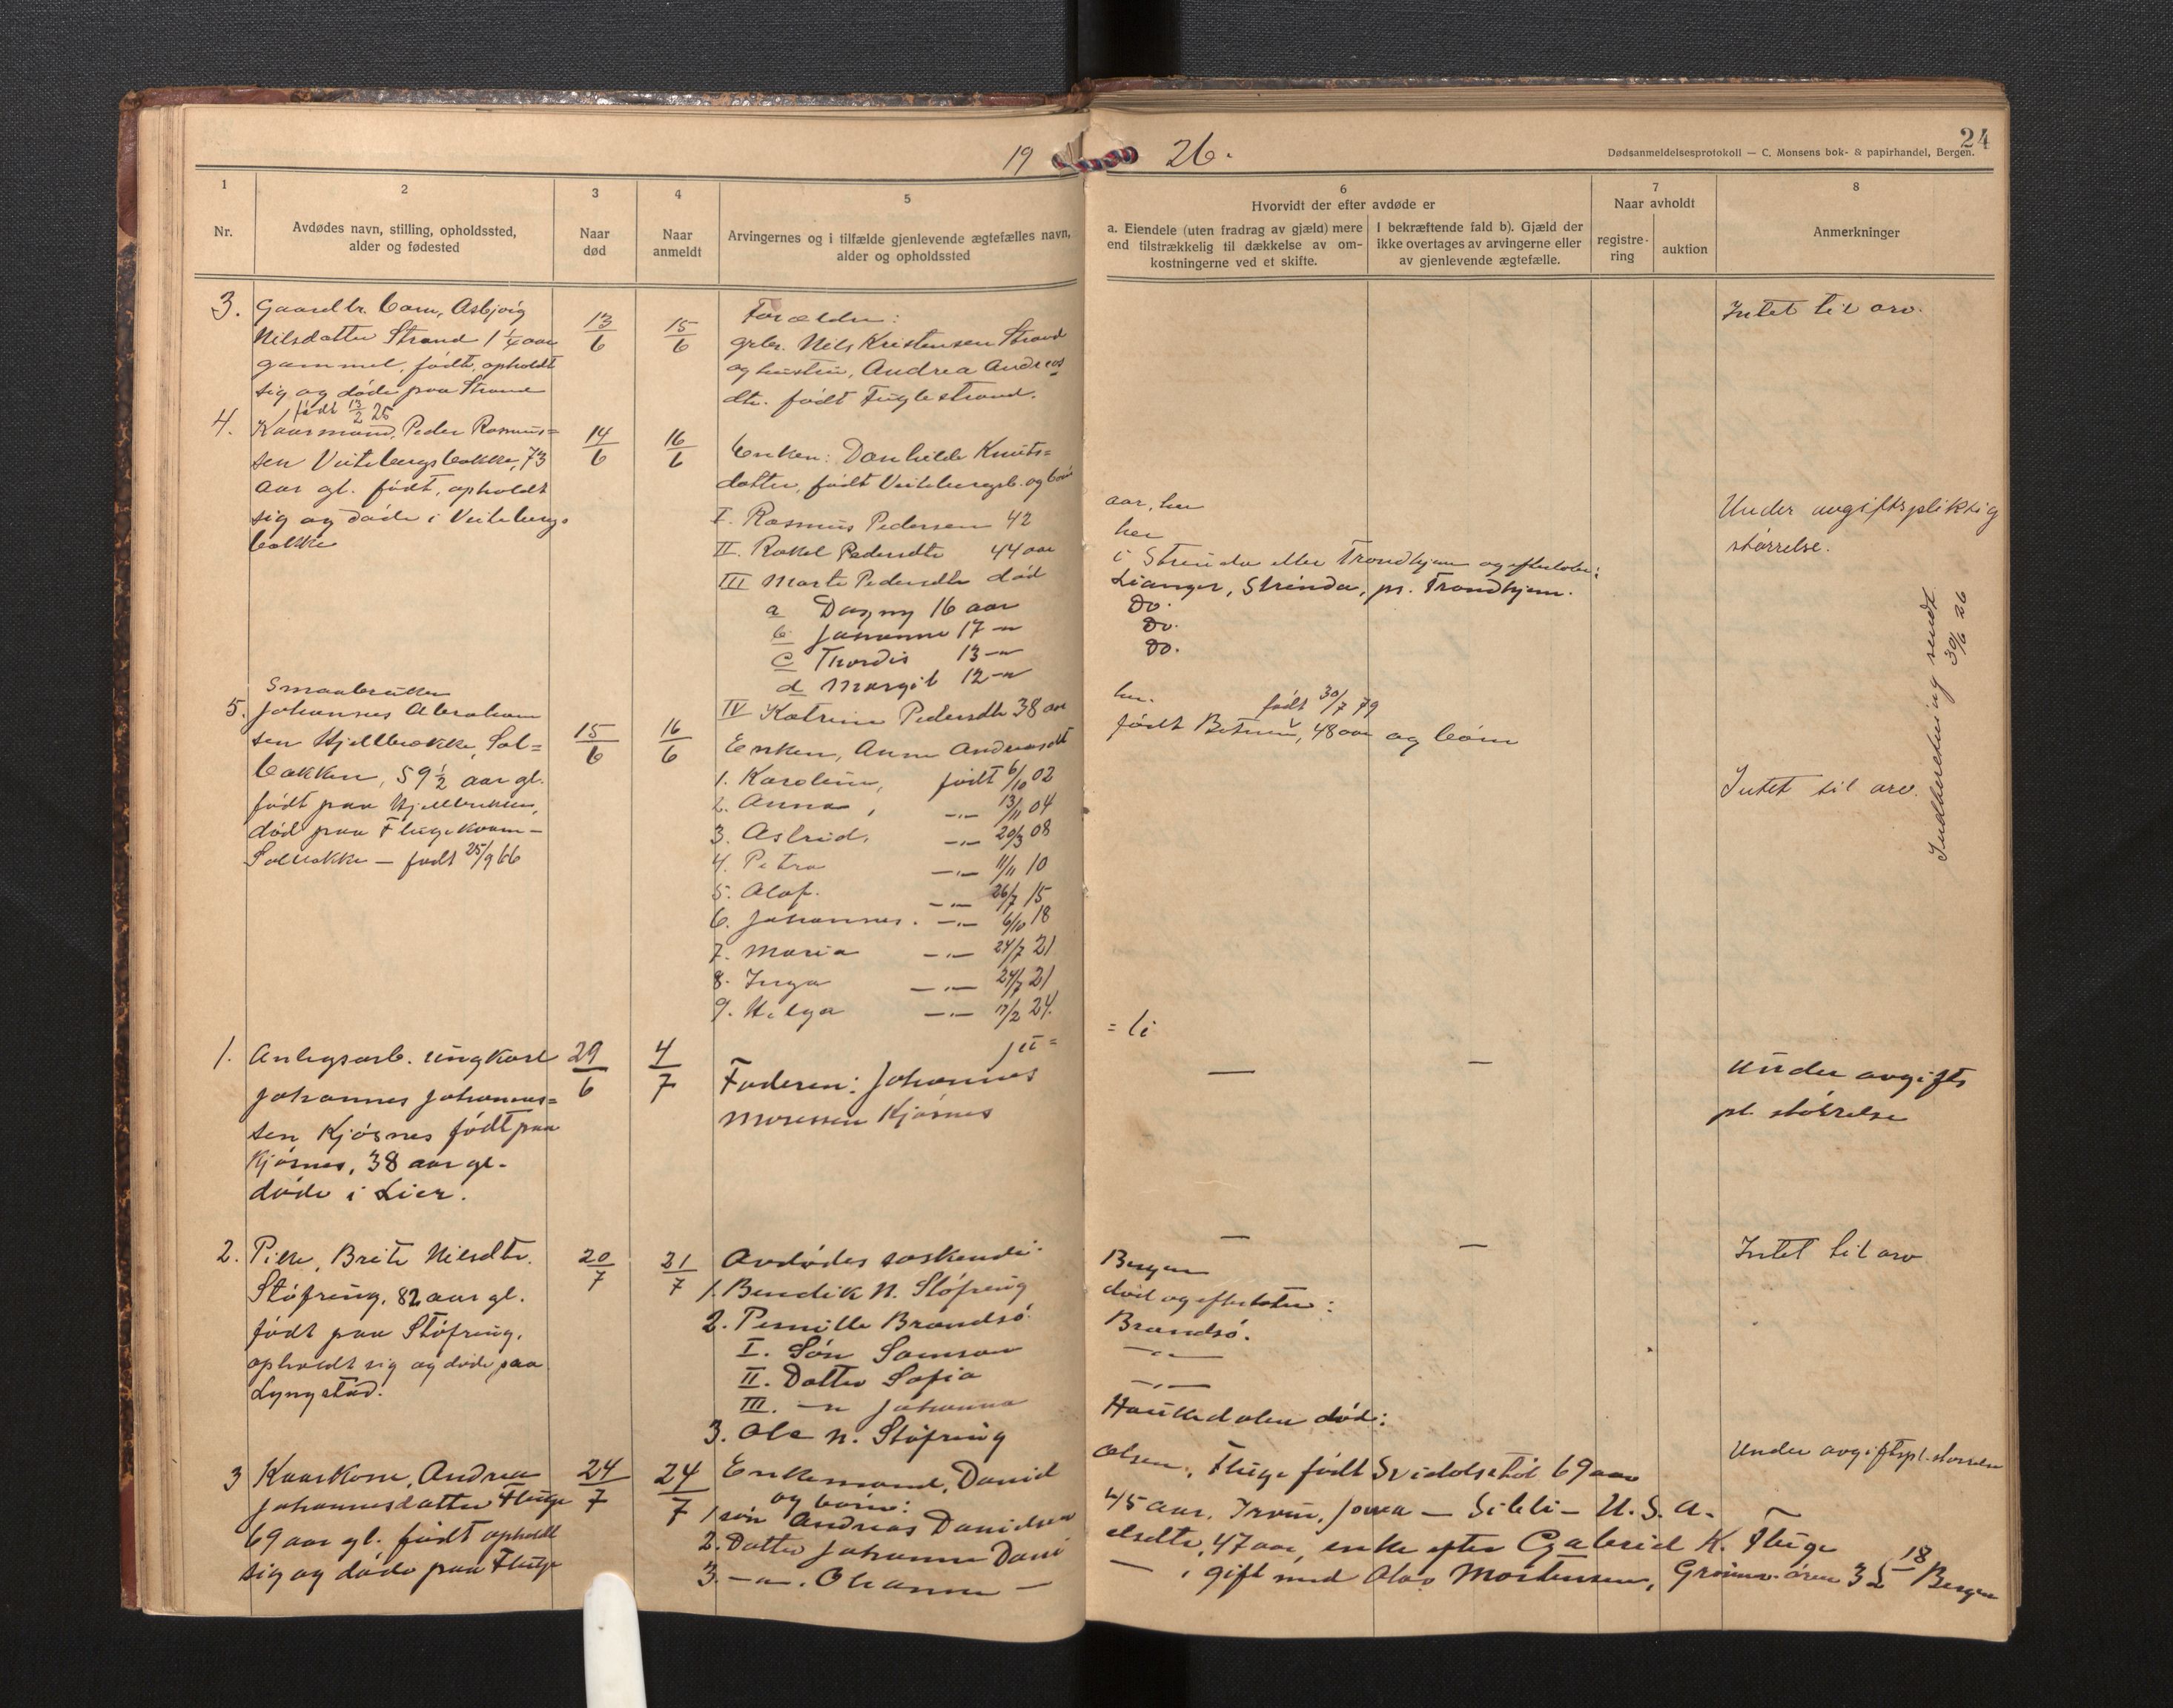 19 26.
24
Dødsanmeldelsesprotokoll — C. Monsens bok- & papirhandel, Bergen.
1
Nr.
2
Avdødes navn, stilling, opholdssted,
alder og fødested
3
Naar
død
4
Naar
anmeldt
5
Arvingernes og i tilfælde gjenlevende ægtefælles navn,
alder og opholdssted
6
Hvorvidt der efter avdøde er
a. Eiendele (uten fradrag av gjæld) mere
end tilstrækkelig til dækkelse av om-
kostningerne ved et skifte.
I bekræftende fald b). Gjæld der
ikke overtages av arvingerne eller
av gjenlevende ægtefælle.
7
Naar avholdt
registre-
ring
auktion
8
Anmerkninger
3. Gaardbr. barn, Asbjørg
Nilsdatter Strand 1 1/4 aar
gammel, født, opholdt
sig og døde paa Strand
født 13/2 25
13/6
15/6
Forældre:
grbr. Nils Kristensen Strand
og hustru, Andrea Andreas
dtr. født Fuglestrand.
Intet til arv.
4. Kaarmand, Peder Rasmus=
sen Veitebergsbakke, 73
Aar gl. født, opholdt
sig og døde i Veitebergs
bakke
14/6
16/6
Enken: Danhilde Knuts=
datter, født Veitebergsb. og børn
I. Rasmus Pedersen 42
aar, her
II. Rakel Pedersdtr 44 aar
her
III Marta Pedersdtr død
i Strinda eller Trondhjem og efterlater:
a Dagny 16 aar
Lianger, Strinda, pr. Trondhjem.
b Johanna 17 -"-
Do.
c Thordis 13 -"-
Do.
d Margit 12 -"-
Do.
IV Katrine Pedersdtr 38 aar
her.
Under avgiftspliktig
størrelse.
Indberetning sendt
30/6 26
Smaabruker
5. Johannes Abraham
sen Hjellbrekke, Sol=
bakken, 59 1/2 aar gl.
født paa Hjellbrekke,
død paa Flugekvam-
Solbakke — født 25/9 66
15/6
16/6
Enken, Anna Andreasdtr
født 30/7 79
født Betnum, 48 aar og børn
1. Karoline, født 6/10 02
2. Anna, -"- 13/11 04
3. Astrid, -"- 20/3 08
4. Petra -"- 11/11 10
5. Olaf. -"- 26/7 15
6. Johannes. -"- 6/10 18
7. Maria -"- 24/7 21
8. Inga -"- 24/7 21
9. Helga -"- 17/2 24.
Intet til arv.
1. Anlegsarb. ungkarl
Johannes Johannes=
sen Kjøsnes født paa
Kjøsnes, 38 aar gl.
døde i Lier.
29/6
4/7
Ju=
=li
Faderen: Johannes
Moressen Kjøsnes
— —
Under avgifts
pl. størrelse
2. Pike, Brite Nilsdtr.
Støfring, 82 aar gl.
født paa Støfring,
opholdt sig og døde paa
Lyngstad.
20/7
21/7
Avdødes søskende:
— —
1. Bendik N. Støfring
Bergen
2. Pernille Brandsø
død og efterlater:
I. Søn Samson
Brandsø.
II. Datter Sofia
-"-
III. -"- Johanna
-"-
3. Ole N. Støfring
Haukedalen død:
Intet til arv
3 Kaarkone, Andrea
Johannesdatter Fluge
69 aar gl. født opholdt
sig og døde paa Fluge
24/7
24/7
Enkemand, David
Olsen, Fluge født Svidalstøl 69 aar
og børn:
1 søn Andreas Davidsen
45 aar, Irvin, Jowa — Sibli — U.S.A.
2. Datter Johanne Davi
elsdtr, 47 aar, enke efter Gabriel K. Fluge
3. -"-. Oleanna —
— , gift med Olav Mortensen, Grønneøren 35 18 Bergen
Under avgiftspl. størrelse